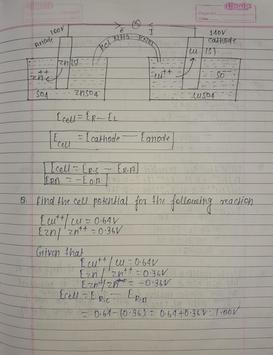 100V
Anode
e
I
140V
cathode
Zn(s)
KCl
Cu (S)
Zn++
Cu++
SO4
ZnSO4
CuSO4
Ecell = ER - EL
Ecell = Ecathode - Eanode
Ecell = ER.C - ER.A
ERA = -EO.A
Q. Find the cell potential for the following reaction
ECu++/Cu = 0.64V
EZn/Zn++ = 0.36V
Given that
ECu++/Cu = 0.64V
EZn/Zn++ = 0.36V
EZn++/Zn = -0.36V
Ecell = ER.C - ER.A
= 0.64-(0.36) = 0.64+0.36V = 1.00V